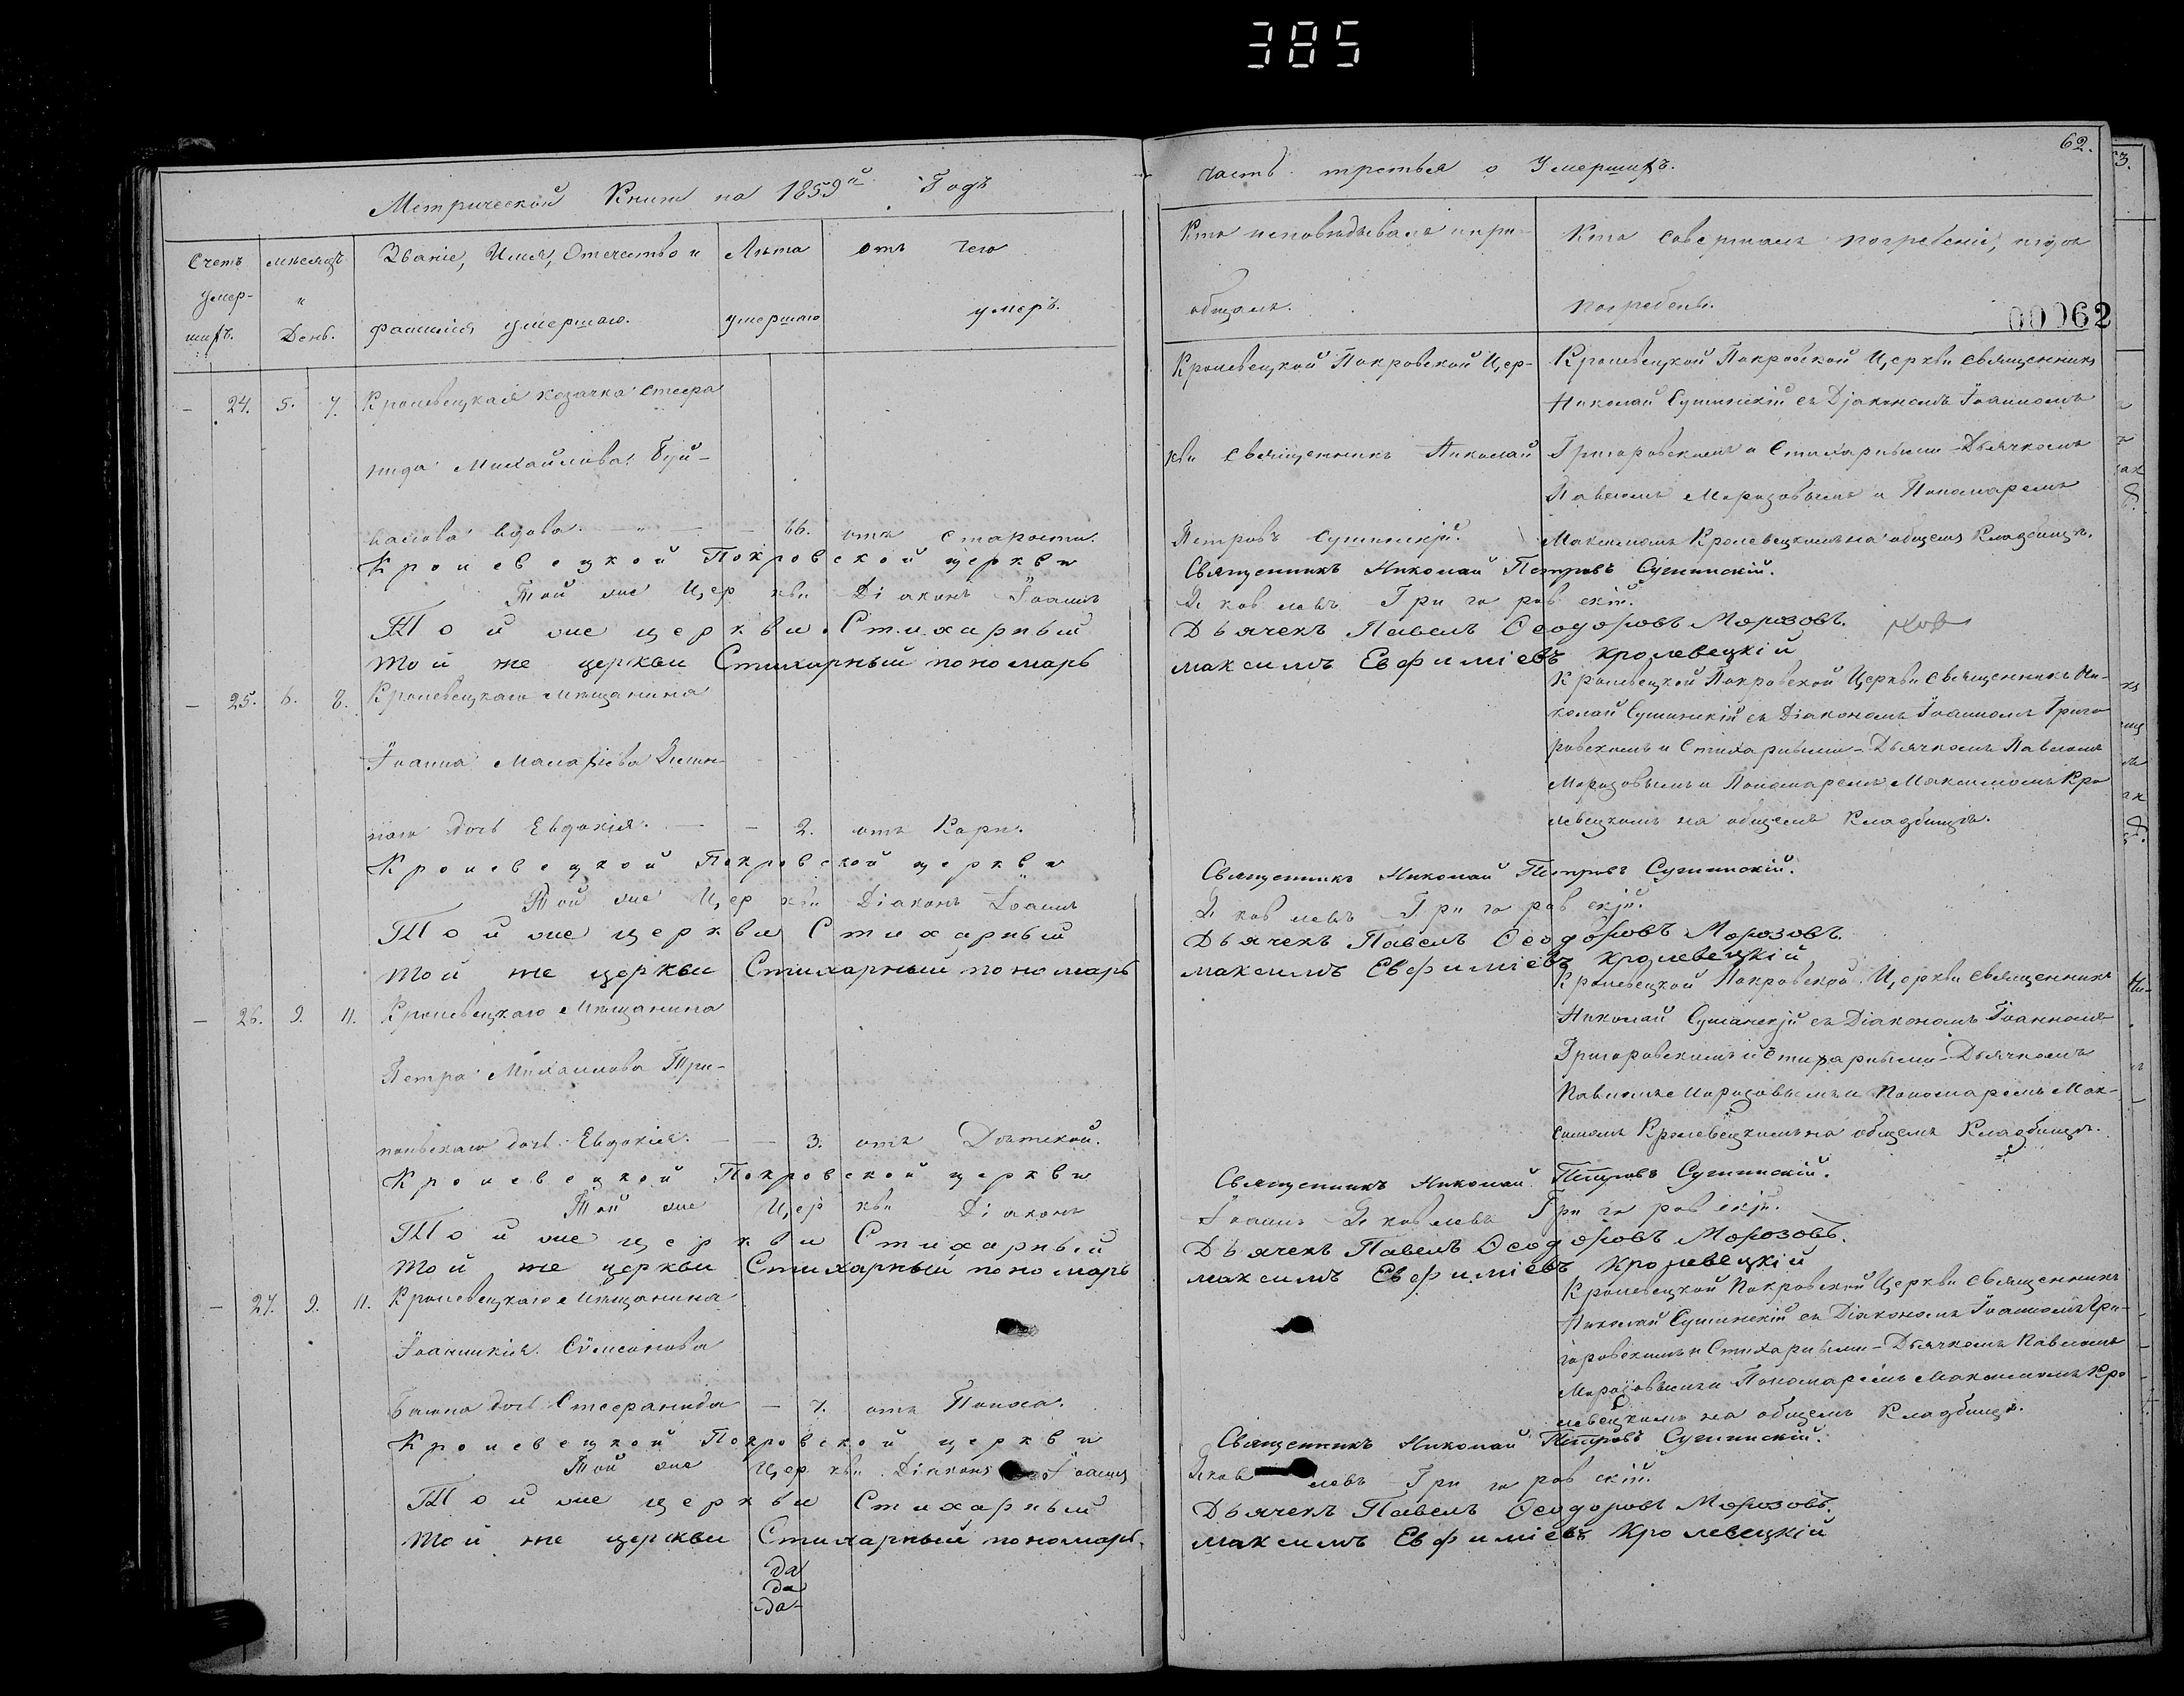 385
62.
Метрической Книги на 1859й Годъ
часть третья о Умершихъ.
Счетъ умер-шихъ.
мѣсяцъ и День.
Званіе, Имя, Отечество и
фамилія умершаго.
Лѣта
умершаго
отъ чего
умеръ.
Кто исповѣдывалъ и прі-
общалъ.
Кто Совершалъ погребеніе, и гдѣ
погребены.
00062
24. 5. 7. Кролевецкая козачка Стефа
нида Михайлова
вдова. 66. отъ старости.
Кролевецкой Покровской Цер-
кви Священникъ Николай
Петровъ Сушинскій.
Кролевецкой Покровской Церкви Священникъ
Николай Сушинскій съ Діакономъ Іоанномъ
Григоровскимъ и Стихарными - Дьячкомъ
Павломъ Морозовымъ и Пономаремъ
Максимомъ Кролевецкимъ на общемъ Кладбищѣ.
Кролевецкой Покровской церкви Священникъ Николай Петровъ Сушинскій.
Той же Церкви Діаконъ Іоаннъ Яковлевъ Григоровскій.
Той же церкви Стихарный Дьячекъ Павелъ Ѳеодоровъ Морозовъ.
Той же церкви Стихарный пономарь максимъ Евфиміевъ Кролевецкій
25. 6. 8. Кролевецкаго мѣщанина
Іоанна Малафіева
дочь Евдокія. 2. отъ Кори.
Кролевецкой Покровской Церкви Священникъ Ни-
колай Сушинскій съ Діакономъ Іоанномъ Григо
ровскимъ и Стихарными - Дьячкомъ Павломъ
Морозовымъ и Пономаремъ Максимомъ Кро
левецкимъ на общемъ Кладбищѣ.
Кролевецкой Покровской церкви Священникъ Николай Петровъ Сушинскій.
Той же Церкви Діаконъ Іоаннъ Яковлевъ Григоровскій.
Той же церкви Стихарный Дьячекъ Павелъ Ѳеодоровъ Морозовъ.
Той же церкви Стихарный пономарь максимъ Евфиміевъ Кролевецкій
26. 9. 11. Кролевецкаго Мѣщанина
Петра Михайлова
дочь Евдокія. 3. отъ Дѣтской.
Кролевецкой Покровской Церкви Священникъ
Николай Сушинскій съ Діакономъ Іоанномъ
Григоровскимъ и Стихарными - Дьячкомъ
Павломъ Морозовымъ и Пономаремъ Мак-
симомъ Кролевецкимъ на общемъ Кладбищѣ.
Кролевецкой Покровской церкви Священникъ Николай Петровъ Сушинскій.
Той же Церкви Діаконъ Іоаннъ Яковлевъ Григоровскій.
Той же церкви Стихарный Дьячекъ Павелъ Ѳеодоровъ Морозовъ.
Той же церкви Стихарный пономарь максимъ Евфиміевъ Кролевецкій
27. 9. 11. Кролевецкаго Мѣщанина
дочь Стефанида 7. отъ
Кролевецкой Покровской Церкви Священникъ
Николай Сушинскій съ Діакономъ Іоанномъ Гри-
горовскимъ и Стихарными - Дьячкомъ Павломъ
Морозовымъ и Пономаремъ Максимомъ Кро
левецкимъ на общемъ Кладбищѣ.
Кролевецкой Покровской церкви Священникъ Николай Петровъ Сушинскій.
Той же Церкви Діаконъ Іоаннъ Яковлевъ Григоровскій.
Той же церкви Стихарный Дьячекъ Павелъ Ѳеодоровъ Морозовъ.
Той же церкви Стихарный пономарь. максимъ Евфиміевъ Кролевецкій
да
да
да